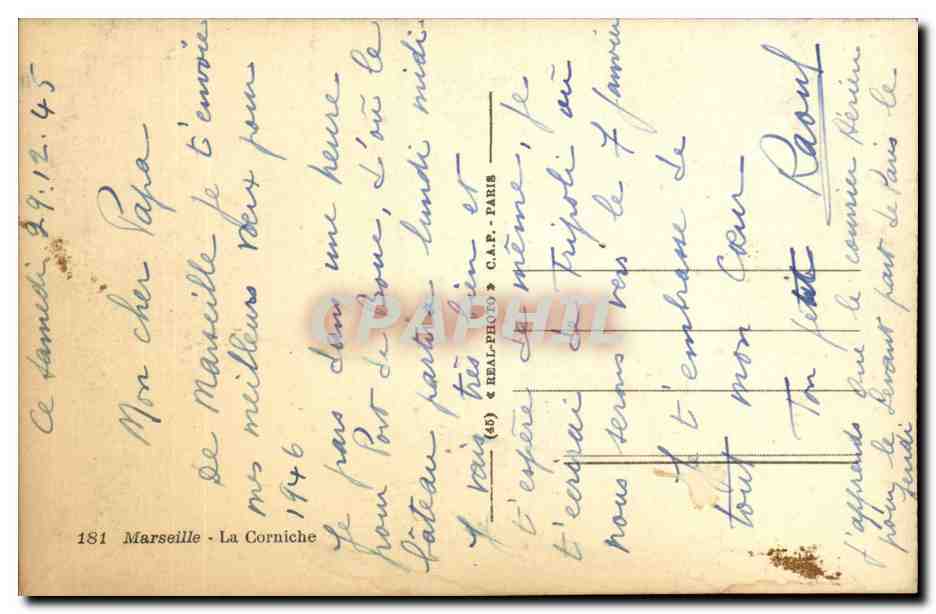 Ce samedi 29.12.45
Mon cher Papa
De Marseille je t'envoie
mes meilleurs vœux pour
1946
Je pars dans une heure
pour Port de Bouc, d'où le
bâteau partira lundi midi
Je vais très bien et
t'espère de même, je
t'écrirai de Tripoli où
nous serons vers le 7 janvier
Je t'embrasse de
tout mon Cœur
Ton petit Raouf
J'apprends que le courrier Aérien
pour le Levant part de Paris le
Jeudi
181 Marseille - La Corniche
(45) « REAL-PHOTO » C.A.P. - PARIS
CPAPHIL